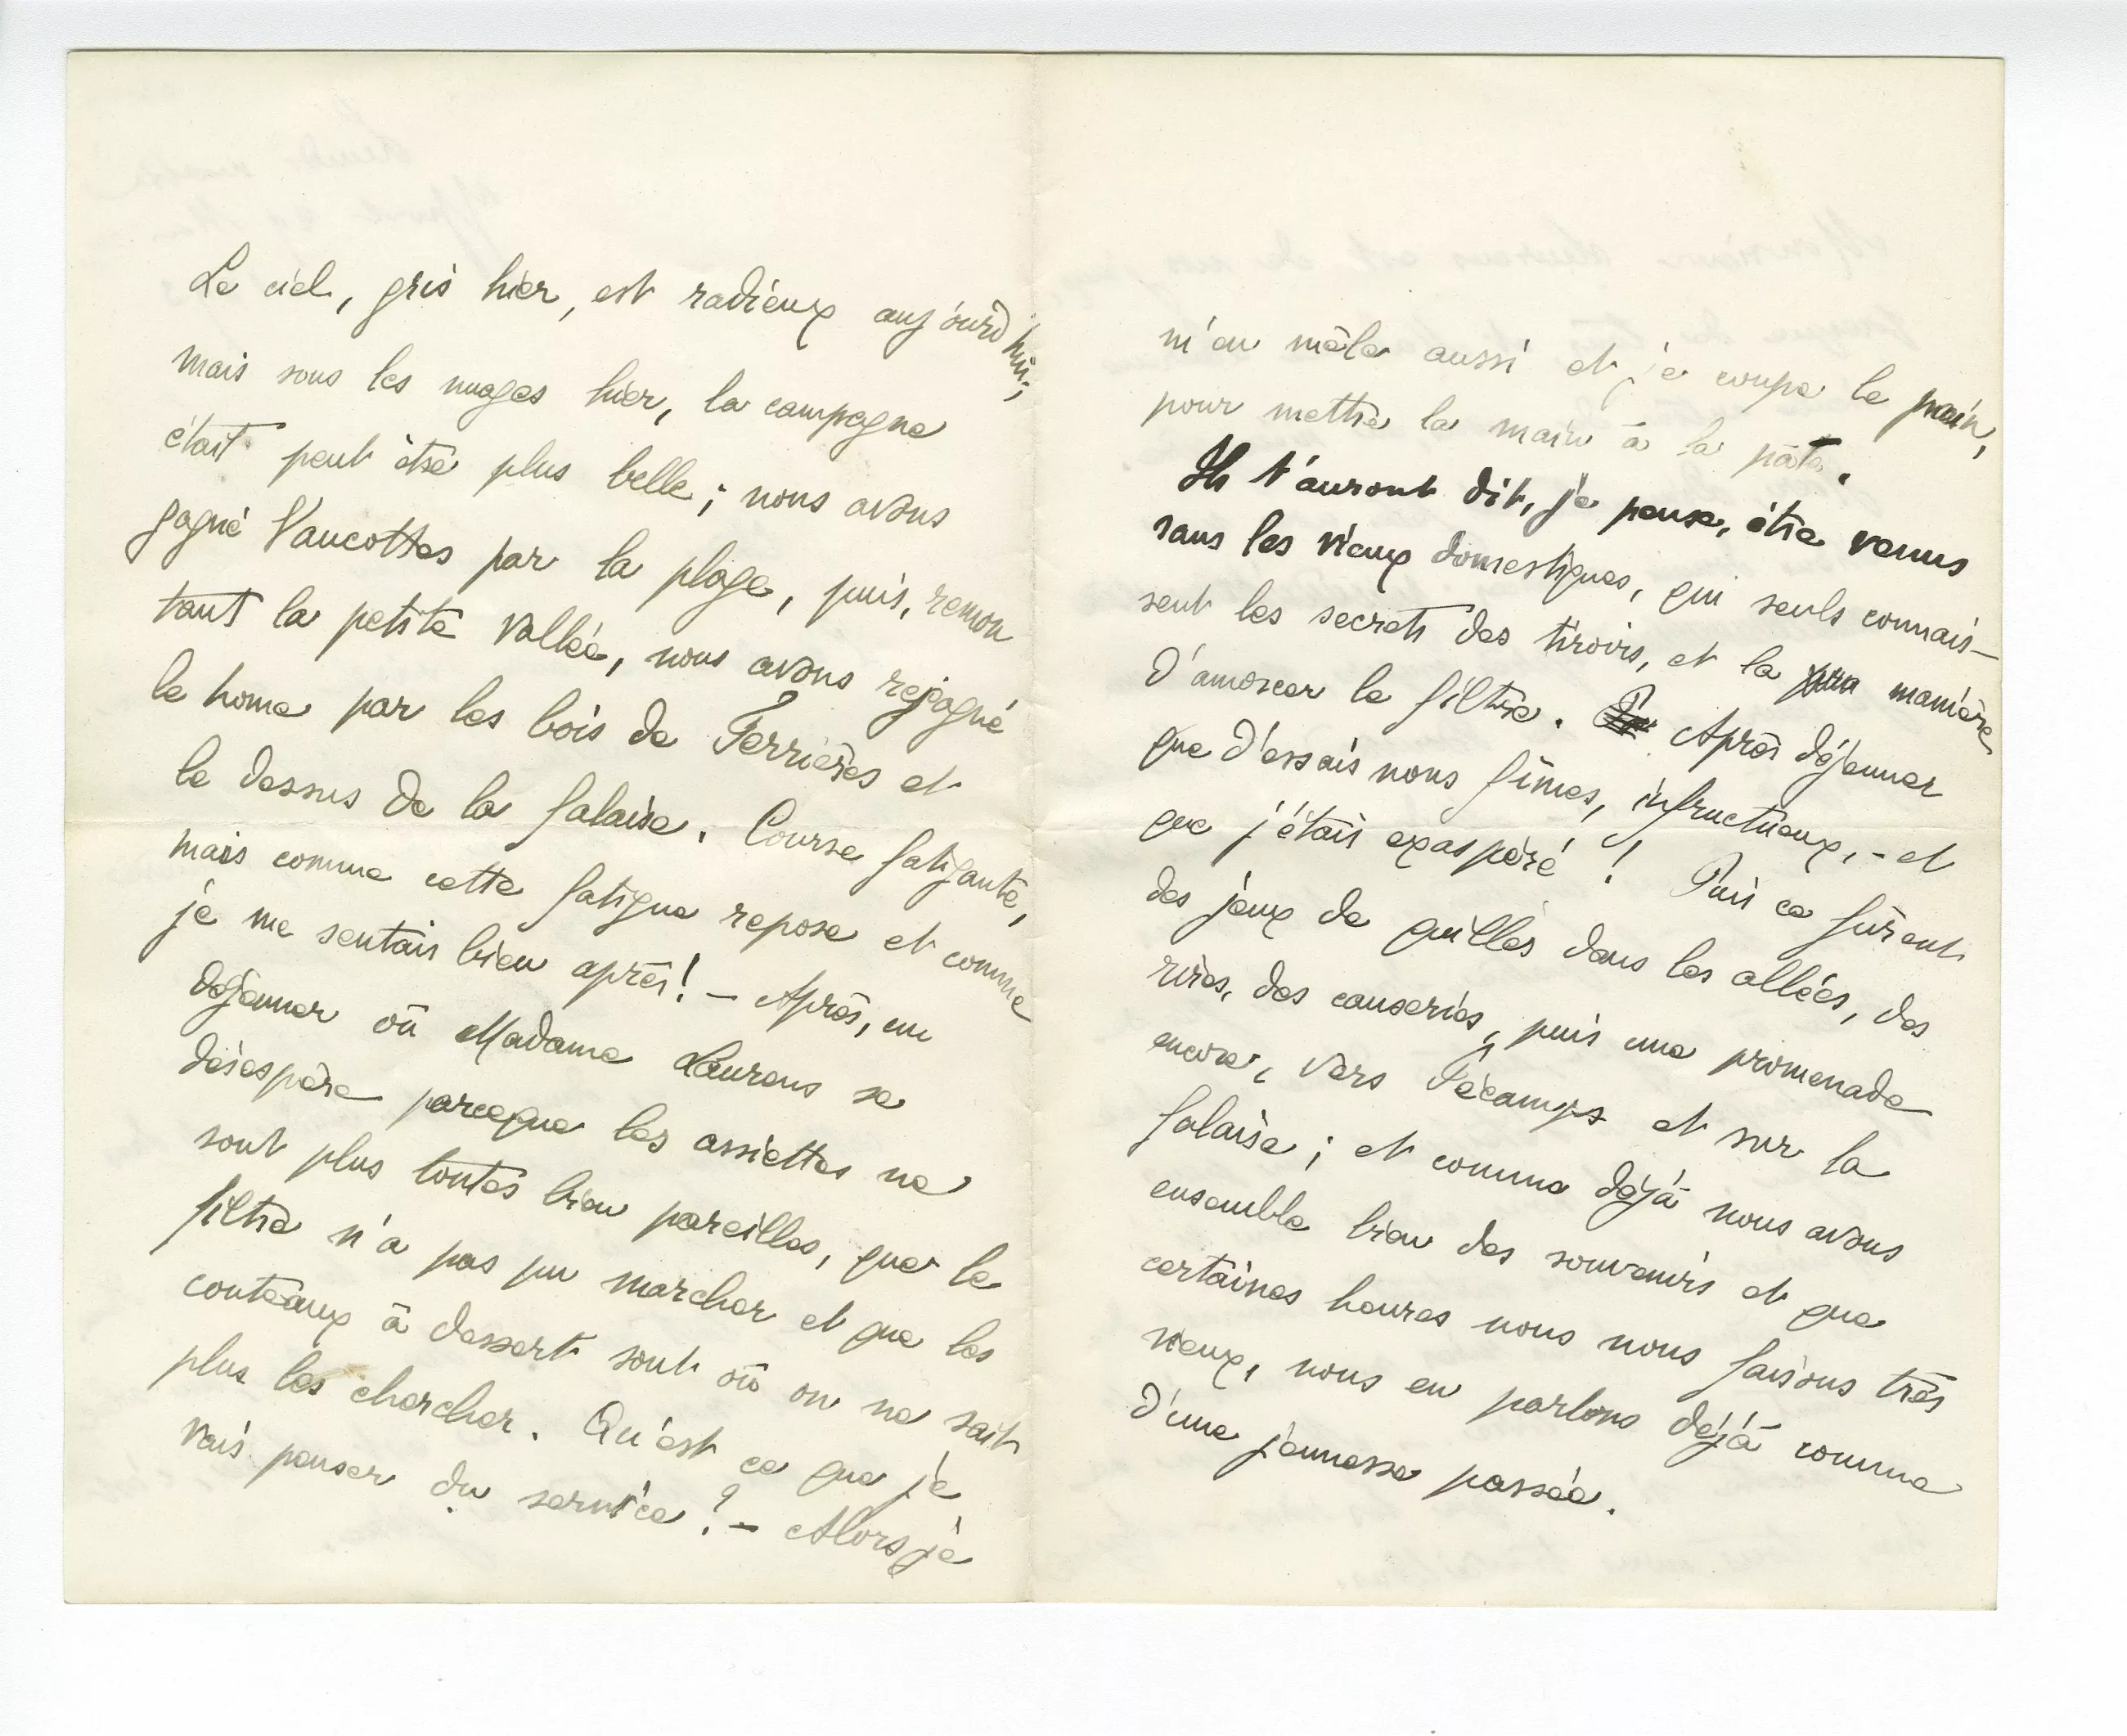 Le ciel, gris hier, est radieux aujourd'hui;
mais sous les nuages hier, la campagne
était peut être plus belle; nous avons
gagné Vaucottes par la plage, puis, remon
tant la petite vallée, nous avons regagné
le home par les bois de Ferrières et
le dessus de la falaise. Course fatigante,
mais comme cette fatigue repose et comme
je me sentais bien après! – Après, un
déjeuner où Madame Laurens se
désespère parceque les assiettes ne
sont plus toutes bien pareilles, que le
filtre n'a pas pu marcher et que les
couteaux à dessert sont où on ne sait
plus les chercher. Qu'est ce que je
vais penser du service? – Alors je
m'en mêle aussi et je coupe le pain,
pour mettre la main à la pâte.
Ils t'auront dit, je pense, être venus
sans les vieux domestiques, qui seuls connais–
sent les secrets des tiroirs, et la manière
d'amorcer le filtre. Après déjeuner
que d'essais nous fîmes, infructueux, – et
que j'étais exaspéré! Puis ce fûrent
des jeux de quilles dans les allées, des
rires, des causeries, puis une promenade
encore, vers Fécamps et sur la
falaise; et comme déjà nous avons
ensemble bien des souvenirs et que
certaines heures nous nous faisons très
vieux, nous en parlons déjà comme
d'une jeunesse passée.